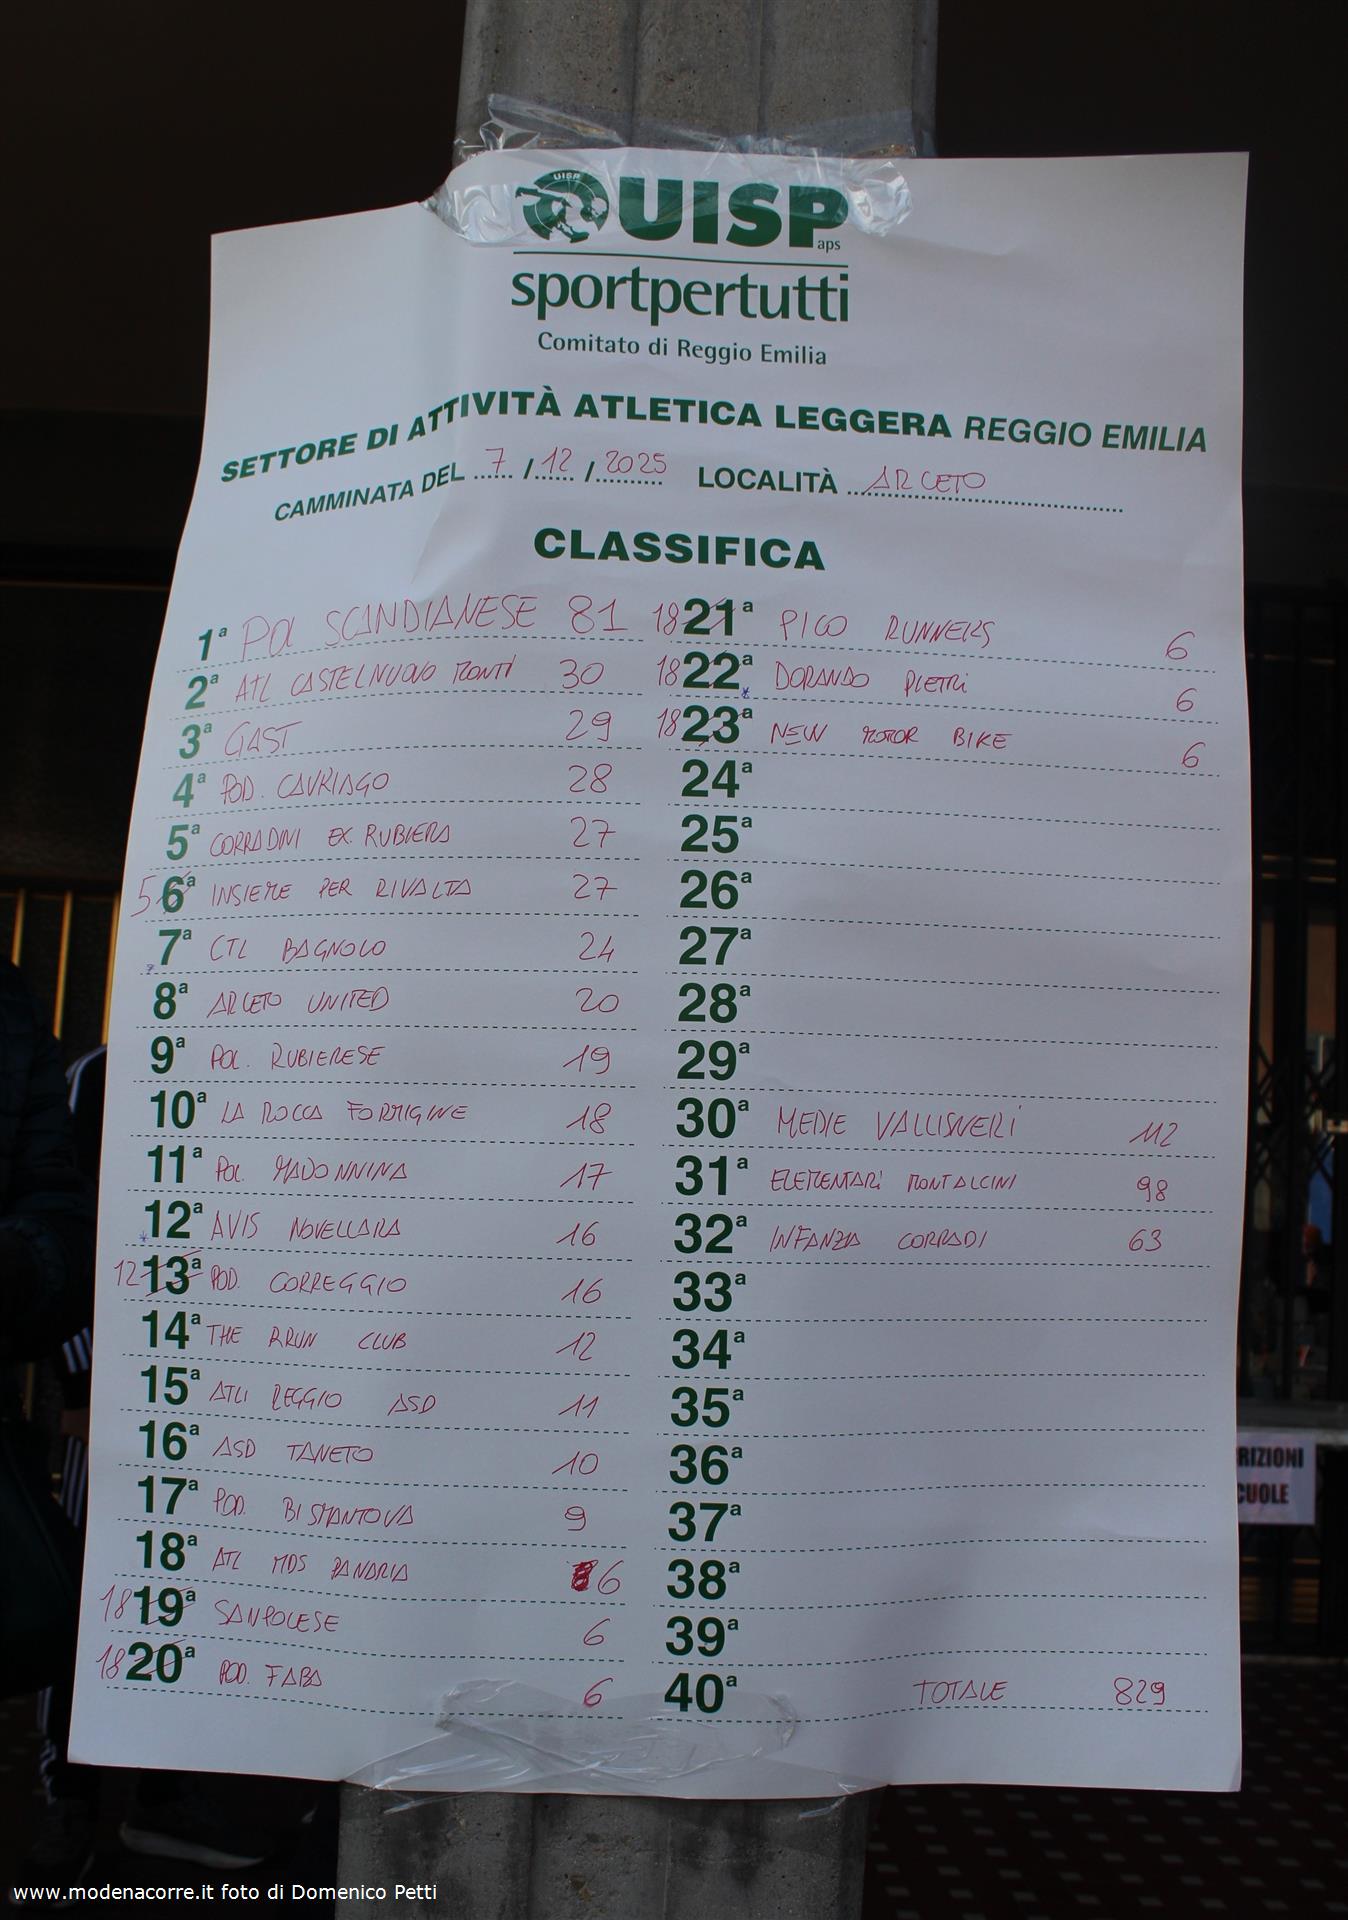 UISP
UISP
aps
sportpertutti
Comitato di Reggio Emilia
SETTORE DI ATTIVITÀ ATLETICA LEGGERA REGGIO EMILIA
CAMMINATA DEL 7 / 12 / 2025 LOCALITÀ ARCETO
CLASSIFICA
1ª POL SCANDIANESE 81
2ª ATL CASTELNUOVO MONTI 30
3ª GAST 29
4ª POD. CAVRIAGO 28
5ª CORRADINI EX. RUBIERA 27
5 6ª INSIEME PER RIVALTA 27
7ª CTL BAGNOLO 24
8ª ARCETO UNITED 20
9ª POL. RUBIERESE 19
10ª LA ROCCA FORMIGINE 18
11ª POL. MADONNINA 17
12ª AVIS NOVELLARA 16
12 13ª POD. CORREGGIO 16
14ª THE RRUN CLUB 12
15ª ATLI REGGIO ASD 11
16ª ASD TANETO 10
17ª POD. BISMANTOVA 9
18ª ATL MDS PANARIA 6
18 19ª SANPOLESE 6
18 20ª POD. FABA 6
18 21ª PICO RUNNERS 6
18 22ª DORANDO PIETRI 6
18 23ª NEW MOTOR BIKE 6
24ª
25ª
26ª
27ª
28ª
29ª
30ª MEDIE VALLISNERI 112
31ª ELEMENTARI MONTALCINI 98
32ª INFANZIA CORRADI 63
33ª
34ª
35ª
36ª
37ª
38ª
39ª
40ª TOTALE 829
RIZIONI
CUOLE
www.modenacorre.it foto di Domenico Petti